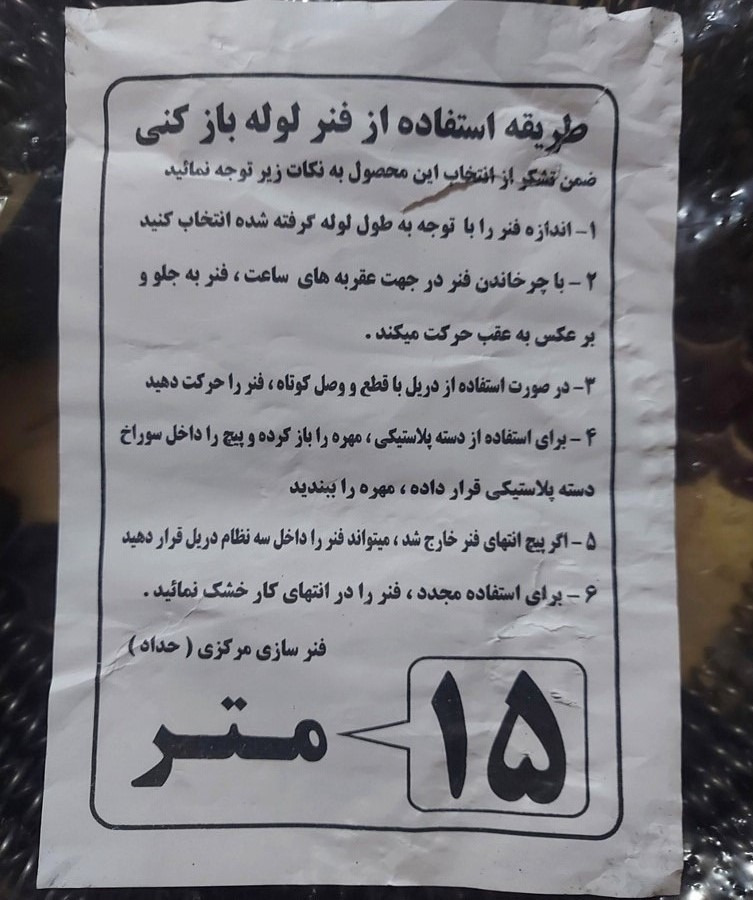 طریقه استفاده از فنر لوله باز کنی
ضمن تشکر از انتخاب این محصول به نکات زیر توجه نمائید
۱- اندازه فنر را با توجه به طول لوله گرفته شده انتخاب کنید
۲ - با چرخاندن فنر در جهت عقربه های ساعت ، فنر به جلو و
بر عکس به عقب حرکت میکند .
۳- در صورت استفاده از دریل با قطع و وصل کوتاه ، فنر را حرکت دهید
۴ - برای استفاده از دسته پلاستیکی ، مهره را باز کرده و پیچ را داخل سوراخ
دسته پلاستیکی قرار داده ، مهره را ببندید
۵ - اگر پیچ انتهای فنر خارج شد ، میتواند فنر را داخل سه نظام دریل قرار دهید
۶ - برای استفاده مجدد ، فنر را در انتهای کار خشک نمائید .
فنر سازی مرکزی ( حداد )
۱۵ متر